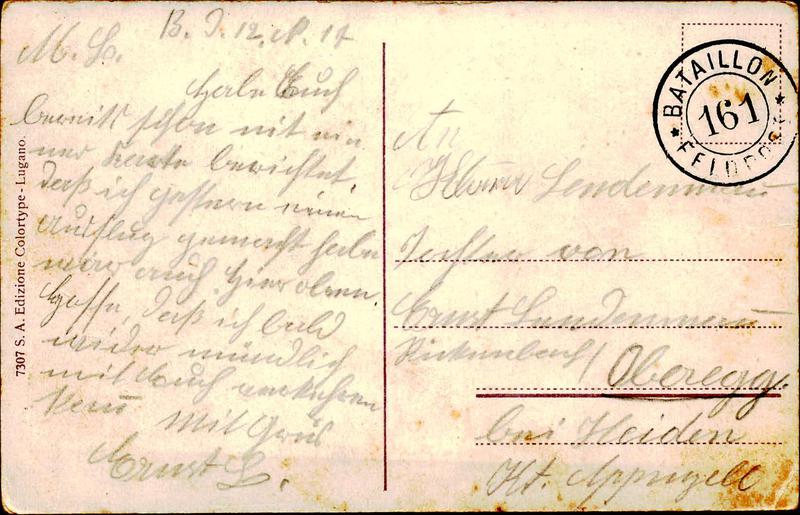 B. J. 12. N. 17
M. L.
Habe Euch
bereits schon mit ein
ner Karte berichtet,
daß ich gestern einen
Ausflug gemacht habe
war auch hier oben.
Hoffe, daß ich bald
wider mündlich
mit Euch verkehren
kann
Mit Gruß
Ernst L.
7307 S. A. Edizione Colortype - Lugano.
BATAILLON
161
FELDPOST
An
Lendenmann
Tochter von
Ernst Lendenmann
Rickenbach / Oberegg.
bei Heiden
Kt. Appenzell